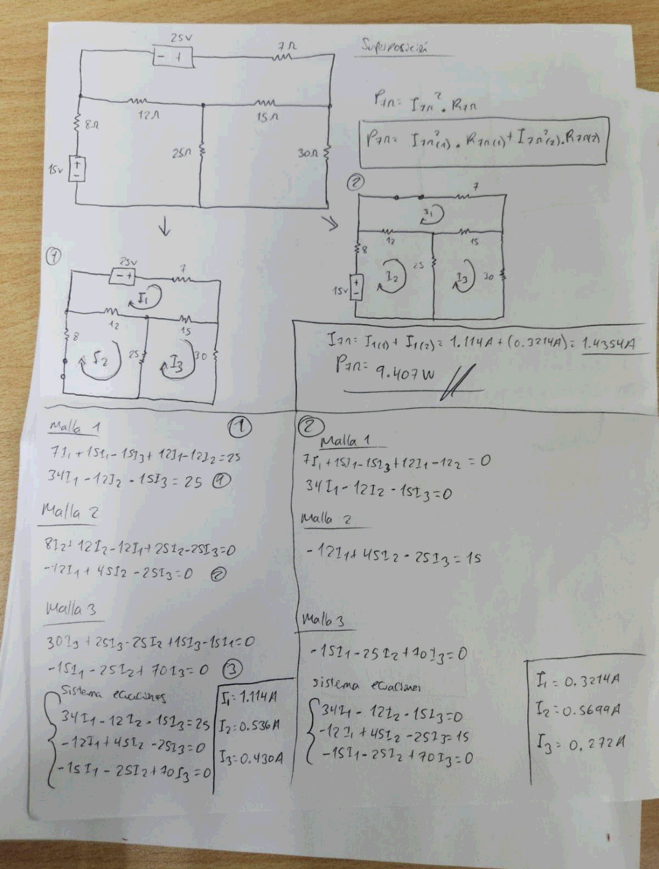 Superposición
25V
- +
7Ω
12Ω
15Ω
8Ω
25Ω
30Ω
15V
+
-
P7Ω = I7Ω² . R7Ω
P7Ω = I7Ω²(1) . R7Ω(1) + I7Ω²(2) . R7Ω(2)
①
25V
- +
7
I1
12
15
8
I2
25
I3
30
②
7
I1
12
15
8
I2
25
I3
30
15V
+
-
I7Ω = I1(1) + I1(2) = 1.114A + (0.3214A) = 1.4354A
P7Ω = 9.407 W
①
Malla 1
7I1 + 15I1 - 15I3 + 12I1 - 12I2 = 25
34I1 - 12I2 - 15I3 = 25 ①
Malla 2
8I2 + 12I2 - 12I1 + 25I2 - 25I3 = 0
-12I1 + 45I2 - 25I3 = 0 ②
Malla 3
30I3 + 25I3 - 25I2 + 15I3 - 15I1 = 0
-15I1 - 25I2 + 70I3 = 0 ③
Sistema ecuaciones
34I1 - 12I2 - 15I3 = 25
-12I1 + 45I2 - 25I3 = 0
-15I1 - 25I2 + 70I3 = 0
I1 = 1.114A
I2 = 0.536A
I3 = 0.430A
②
Malla 1
7I1 + 15I1 - 15I3 + 12I1 - 122 = 0
34I1 - 12I2 - 15I3 = 0
Malla 2
-12I1 + 45I2 - 25I3 = 15
Malla 3
-15I1 - 25I2 + 70I3 = 0
sistema ecuaciones
34I1 - 12I2 - 15I3 = 0
-12I1 + 45I2 - 25I3 = 15
-15I1 - 25I2 + 70I3 = 0
I1 = 0.3214A
I2 = 0.5699A
I3 = 0.272A